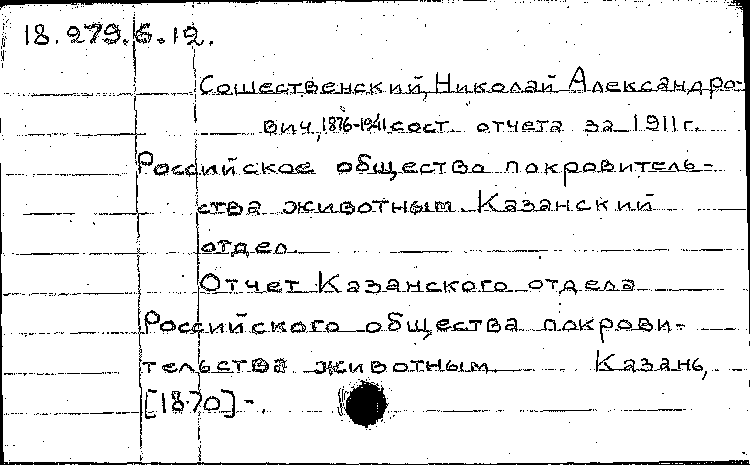 18.279.6.12.
Сошественский, Николай Александро-
вич, 1876-1941 сост. отчета за 1911 г.
Российское общество покровитель-
ства животным. Казанский
отдел.
Отчет Казанского отдела
Российского общества покрови-
тельства животным. Казань,
[1870] -.